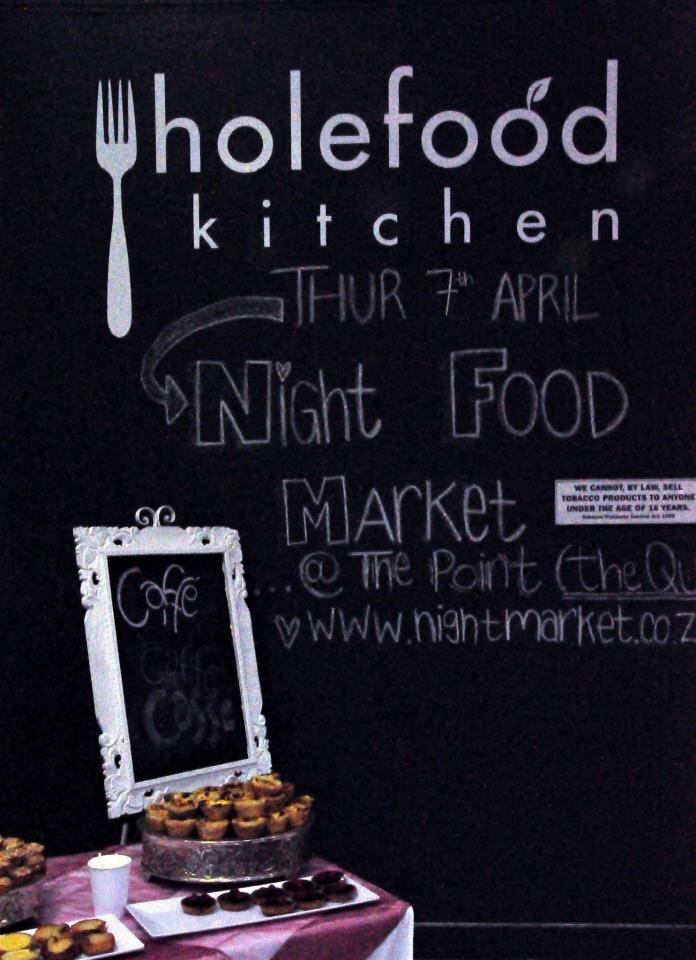 holefood
kitchen
THUR 7th APRIL
Night FOOD
Market
...@ The Point (the Qu
www.nightmarket.co.z
WE CANNOT, BY LAW, SELL
TOBACCO PRODUCTS TO ANYONE
UNDER THE AGE OF 16 YEARS.
Tobacco Products Control Act 1999
Caffé
Caffe